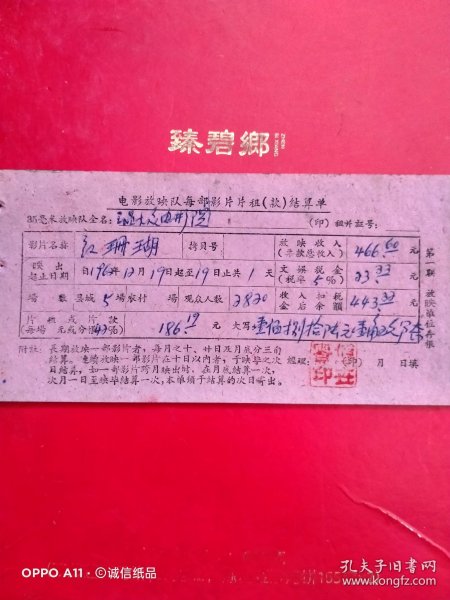 臻碧鄉
电影放映队每部影片片租(款)结算单
35毫米放映队全名: (印) 租片证号:
影片名称 红珊瑚 拷贝号 放映收入(片款总收入) 466.60 元
映出起止日期 自196 年12月19日起至19日止共1天 文娱税金(税率5%) 23.33 元
场数 县城5场农村 场 观众人数 3830 收入扣税金后余额 443.33 元
片租或片款(每场 元或分 42%) 186.19 元 大写
第一联 放映单位存根
附注: 长期放映一部影片者,每月之十、廿日及月底分三旬
结算。连续放映一部影片在十日以内者,于映毕之次 经理: (印) 月 日填
日结算,如一部影片跨月映出时,在月底结算一次,
次月一日至映毕结算一次,本单须于结算的次日付出。
OPPO A11 · ©诚信纸品
孔夫子旧书网
www.kongfz.com